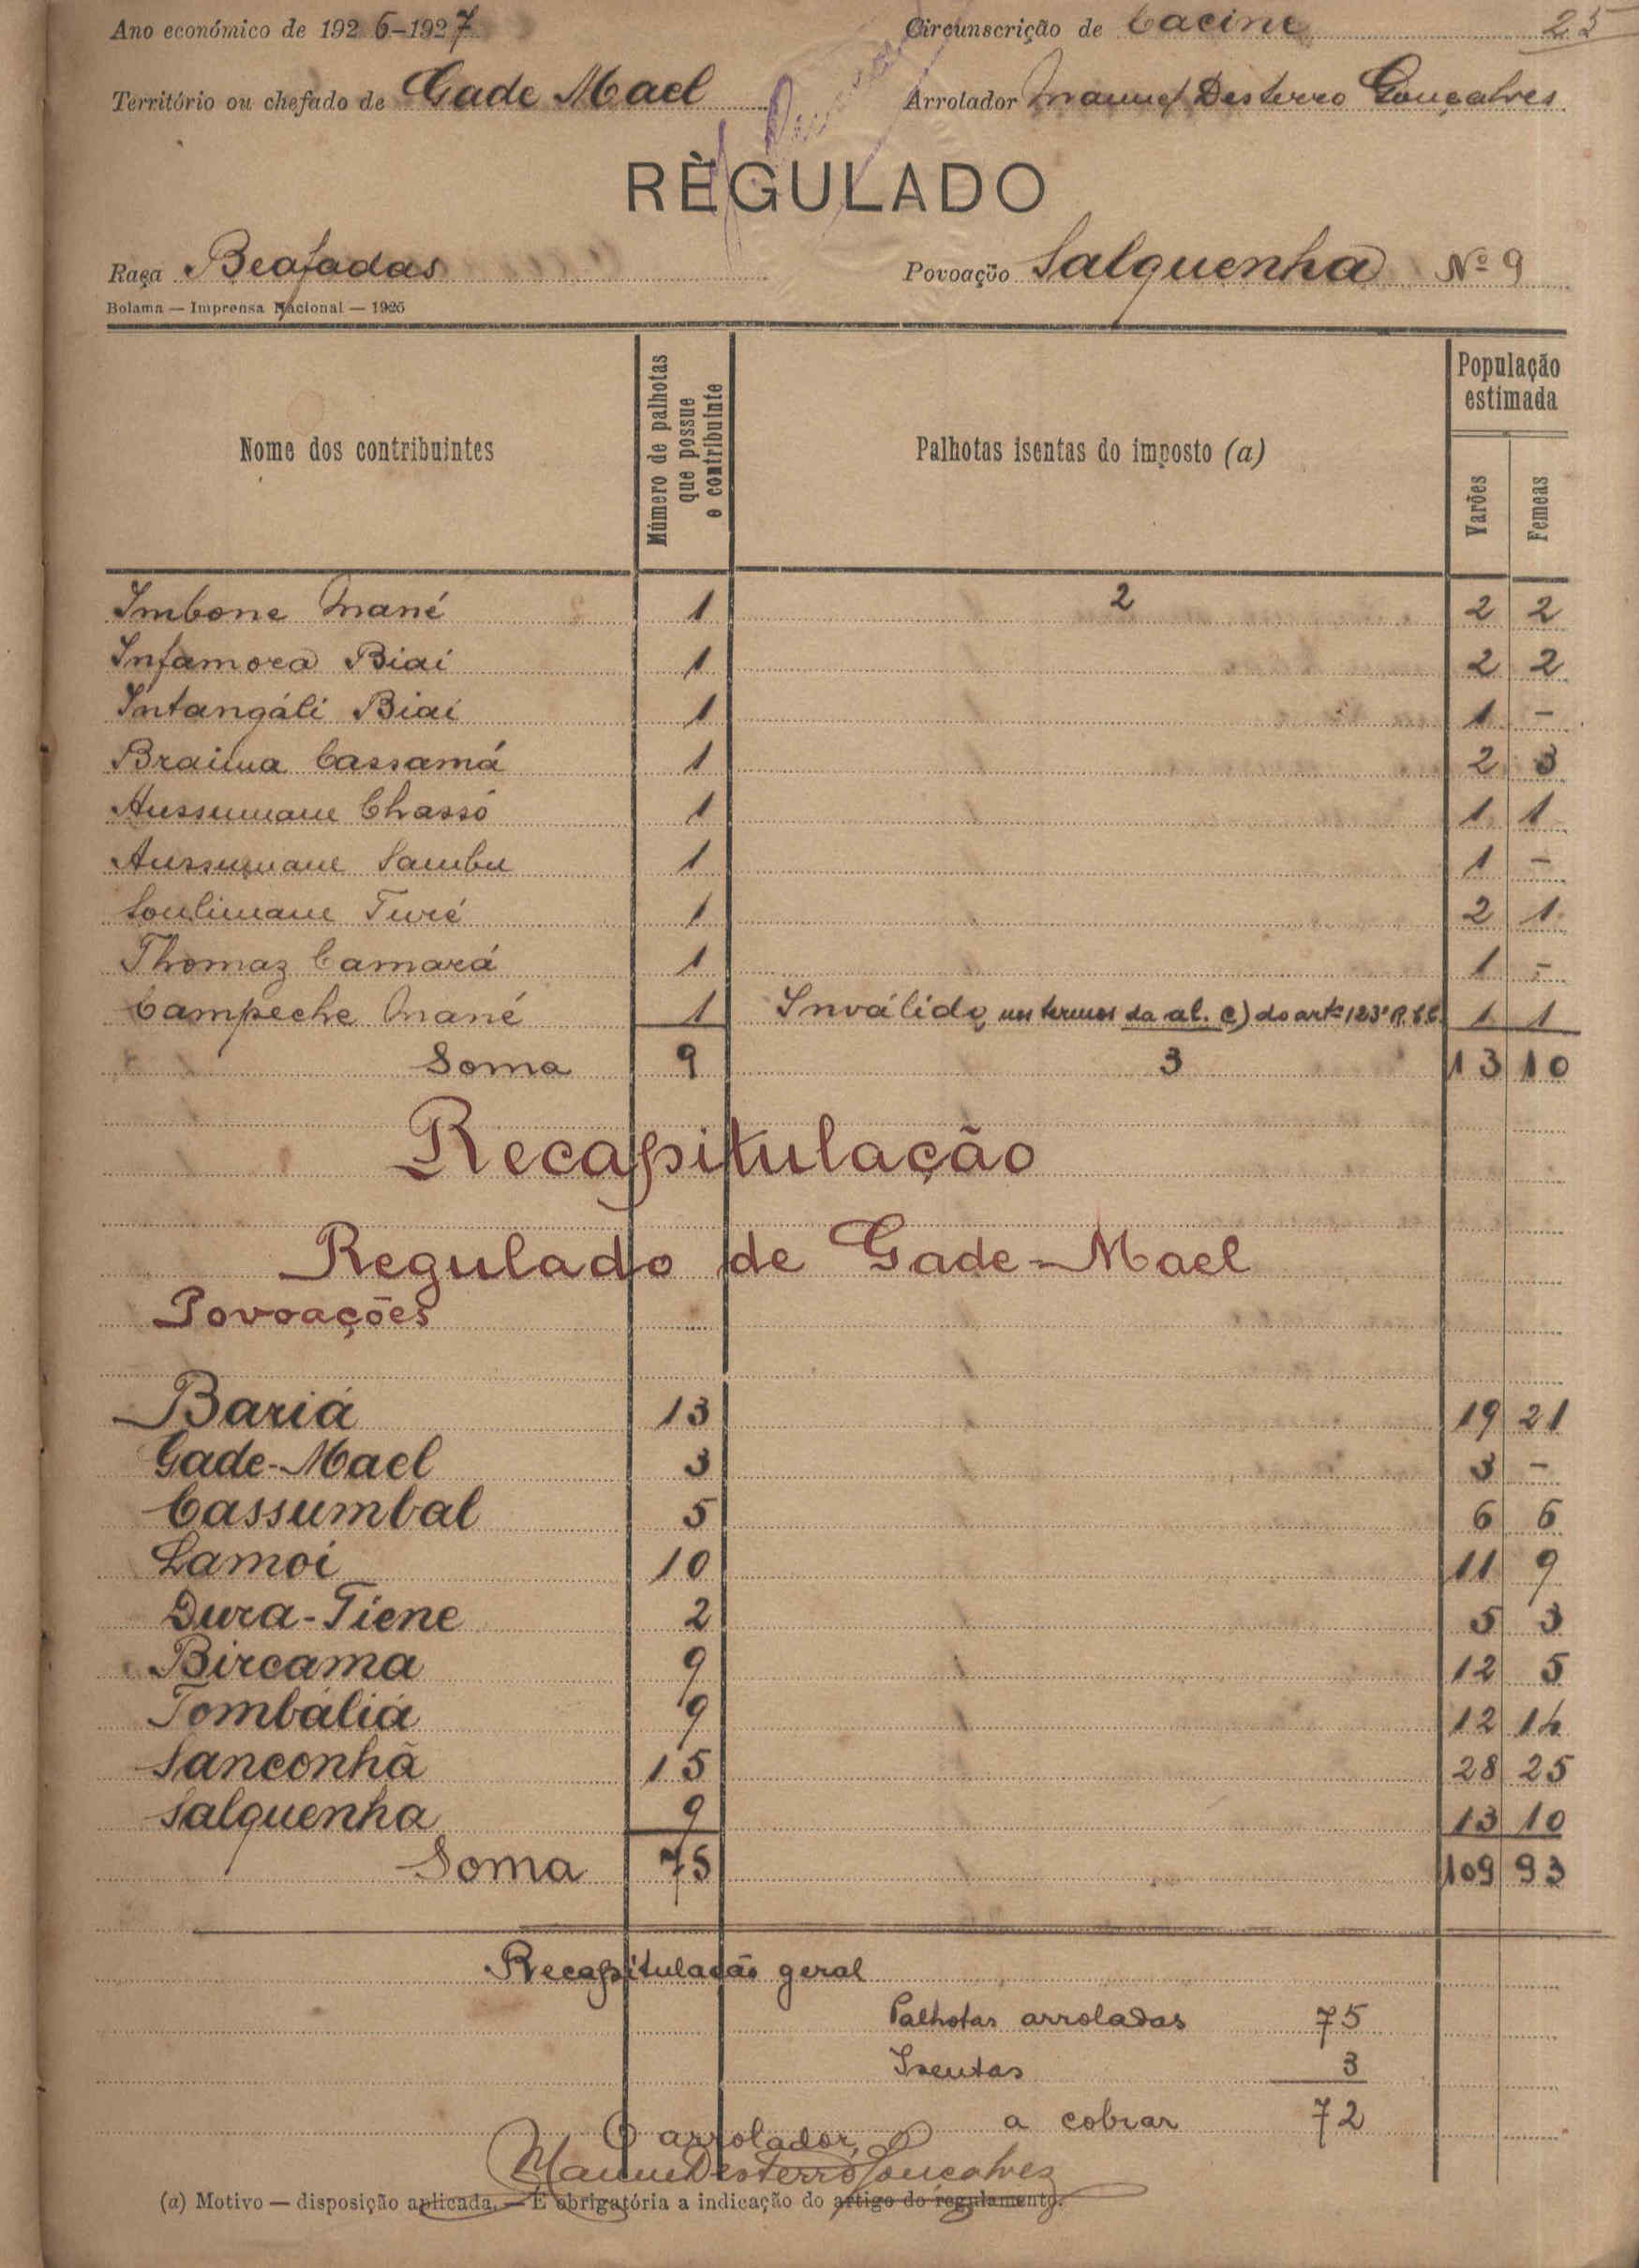 Ano económico de 1926-1927 Circunscrição de Cacine 25
Território ou chefado de Gade Mael Arrolador Manuel Desterro Gonçalves
RÈGULADO
Raça Beafadas Povoação Salquenha Nº 9
Bolama — Imprensa Nacional — 1926
Nome dos contribuintes Número de palhotas que possue o contribuinte Palhotas isentas do imposto (a) População estimada Varões Femeas
Imbone Mané 1 2 2 2
Infamora Biai 1 2 2
Intangáli Biai 1 1 -
Braima Cassamá 1 2 3
Aussumane Chassó 1 1 1
Aussumane Sambu 1 1 -
Soulimane Turé 1 2 1
Thomaz Camará 1 1 -
Campeche Mané 1 Inválido nos termos da al. e) do artº 123º 1 1
Soma 9 3 13 10
Recapitulação
Regulado de Gade-Mael
Povoações
Bariá 13 19 21
Gade-Mael 3 3 -
Cassumbal 5 6 6
Lamoi 10 11 9
Dura-Tiene 2 5 3
Bircama 9 12 5
Tombáliá 9 12 14
Sanconhã 15 28 25
Salquenha 9 13 10
Soma 75 109 93
Recapitulação geral
Palhotas arroladas 75
Isentas 3
a cobrar 72
O arrolador,
Manuel Desterro Gonçalves
(a) Motivo — disposição aplicada. — É obrigatória a indicação do artigo do regulamento.